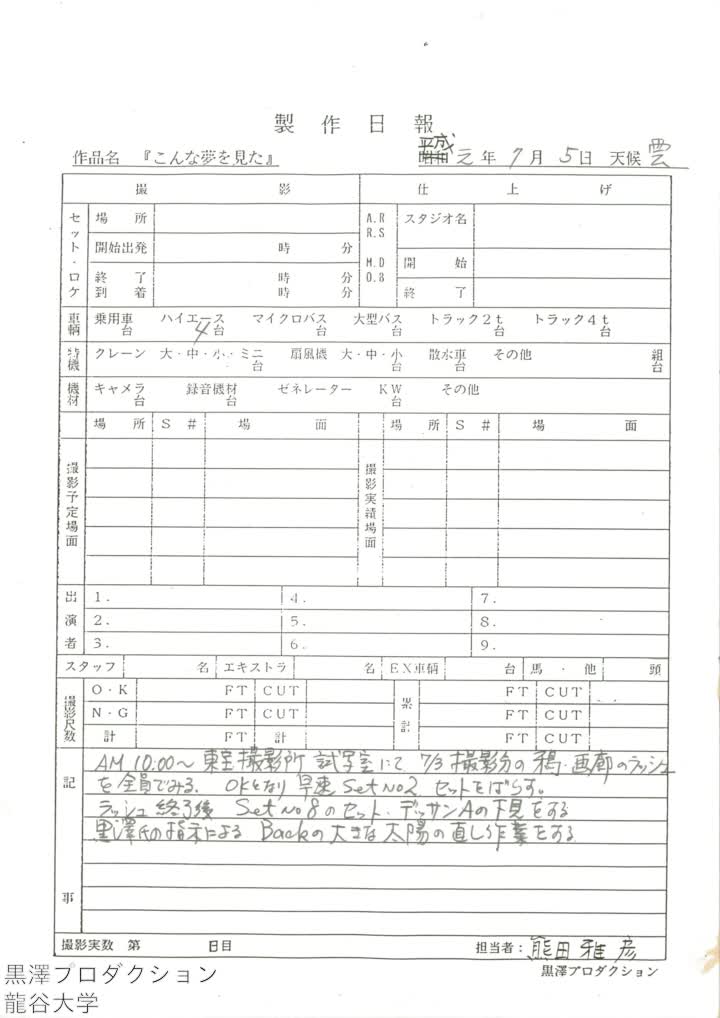 製作日報
作品名 『こんな夢を見た』 昭和 平成 元年 7月 5日 天候 雲
撮影 仕上げ
セット・ロケ 場所 A.R R.S スタジオ名
開始出発 時 分 M.D O.8 開始
終了 時 分 終了
到着 時 分
車輌 乗用車 台 ハイエース 4台 マイクロバス 台 大型バス 台 トラック2t 台 トラック4t 台
特機 クレーン 大・中・小・ミニ 台 扇風機 大・中・小 台 散水車 台 その他 組 台
機材 キャメラ 台 録音機材 台 ゼネレーター KW 台 その他
場所 S# 場面 場所 S# 場面
撮影予定場面 撮影実績場面
出演者 1. 4. 7.
2. 5. 8.
3. 6. 9.
スタッフ 名 エキストラ 名 EX車輌 台 馬・他 頭
撮影尺数 O・K FT CUT 累計 FT CUT
N・G FT CUT FT CUT
計 FT 計 FT CUT
記事
AM 10:00〜 東宝撮影所 試写室にて 7/3 撮影分の 鴉・画廊のラッシュ
を全員でみる. OKとなり 早速 Set No2 セットをばらす。
ラッシュ終了後 Set No8のセット・デッサンAの下見をする
黒澤氏の指示による Backの大きな太陽の直し作業をする
撮影実数 第 日目 担当者: 熊田雅彦
黒澤プロダクション
黒澤プロダクション
龍谷大学